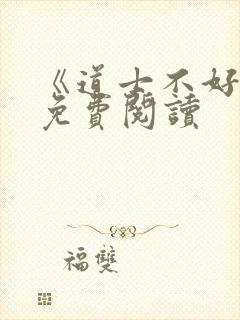 《道士不好
免費閱讀
福雙